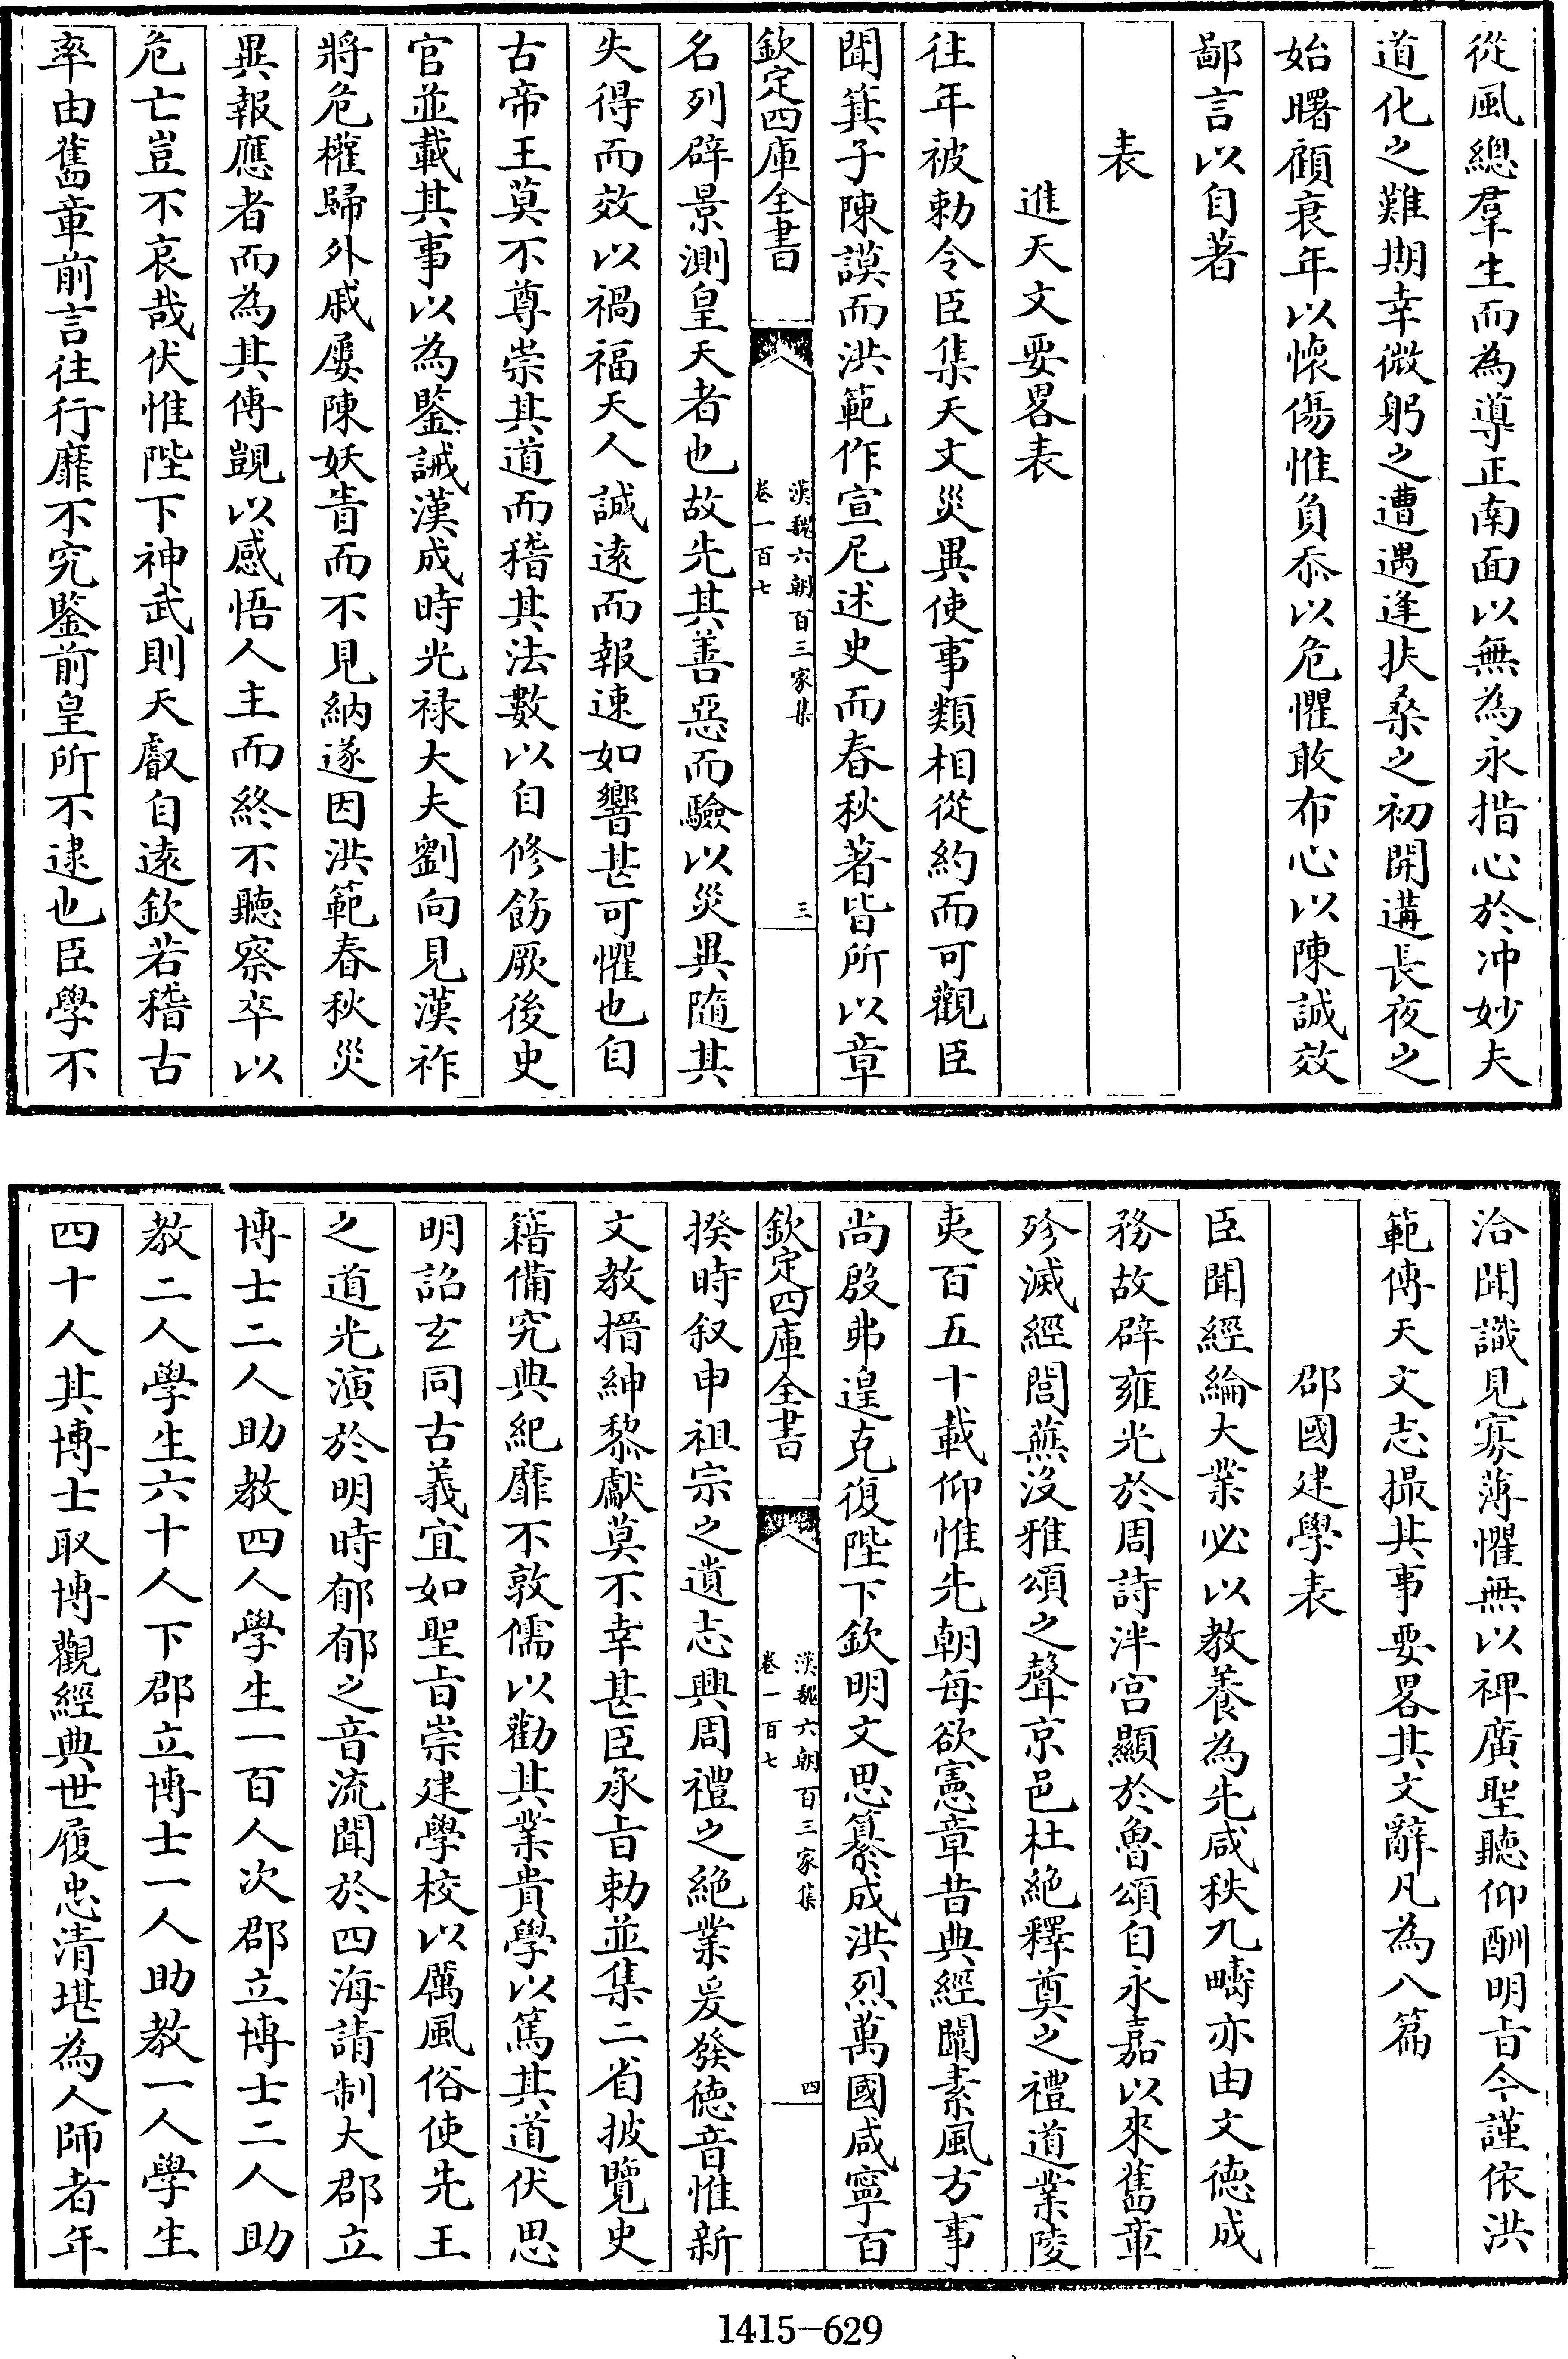 從風總羣生而為導正南面以無為永措心於沖妙夫
道化之難期幸微躬之遭遇逢扶桑之初開遘長夜之
始曙顧衰年以懷傷惟負忝以危懼敢布心以陳誠效
鄙言以自著
表
進天文要畧表
往年被勅令臣集天文災異使事類相從約而可觀臣
聞箕子陳謨而洪範作宣尼述史而春秋著皆所以章
欽定四庫全書
漢魏六朝百三家集
卷一百七
三
名列辟景測皇天者也故先其善惡而驗以災異隨其
失得而效以禍福天人誠遠而報速如響甚可懼也自
古帝王莫不尊崇其道而稽其法數以自修飭厥後史
官並載其事以為鑒誡漢成時光禄大夫劉向見漢祚
將危權歸外戚屢陳妖眚而不見納遂因洪範春秋災
異報應者而為其傳覬以感悟人主而終不聽察卒以
危亡豈不哀哉伏惟陛下神武則天叡自遠欽若稽古
率由舊章前言往行靡不究鑒前皇所不逮也臣學不
洽聞識見寡薄懼無以裨廣聖聽仰酬明旨今謹依洪
範傳天文志撮其事要畧其文辭凡為八篇
郡國建學表
臣聞經綸大業必以教養為先咸秩九疇亦由文德成
務故辟雍光於周詩泮宫顯於魯頌自永嘉以來舊章
殄滅經閭蕪没雅頌之聲京邑杜絶釋奠之禮道業陵
夷百五十載仰惟先朝每欲憲章昔典經闡素風方事
尚殷弗遑克復陛下欽明文思纂成洪烈萬國咸寧百
欽定四庫全書
漢魏六朝百三家集
卷一百七
四
揆時叙申祖宗之遺志興周禮之絶業爰發德音惟新
文教搢紳黎獻莫不幸甚臣承旨勅並集二省披覽史
籍備究典紀靡不敦儒以勸其業貴學以篤其道伏思
明詔玄同古義宜如聖旨崇建學校以厲風俗使先王
之道光演於明時郁郁之音流聞於四海請制大郡立
博士二人助教四人學生一百人次郡立博士二人助
教二人學生六十人下郡立博士一人助教一人學生
四十人其博士取博觀經典世履忠清堪為人師者年
1415-629